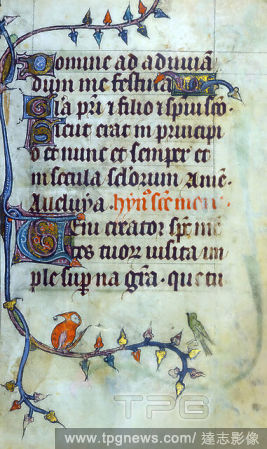 Domine ad adiuuā
dum me festina
Gl̄a pr̄i ⁊ filio ⁊ sp̄ui sc̄o.
Sicut erat in principi
o et nunc et semper et
in secula sc̄lorum Amē.
Alleluya. hyn̄o
Ueni creator sp̄c mē
tes tuoꝝ uisita im
ple sup̄na gr̄a. que tu
TPG
www.tpgnews.com/ 達志影像